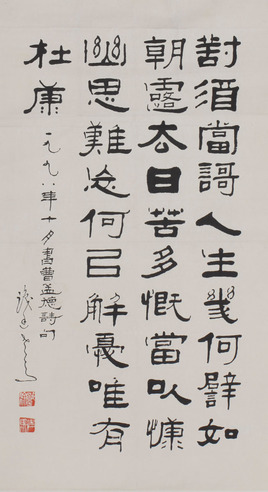 對酒當謌人生幾何譬如
朝露去日苦多慨當以慷
幽思難忘何已解憂唯有
杜康
一九九八年十月書曹孟德詩句